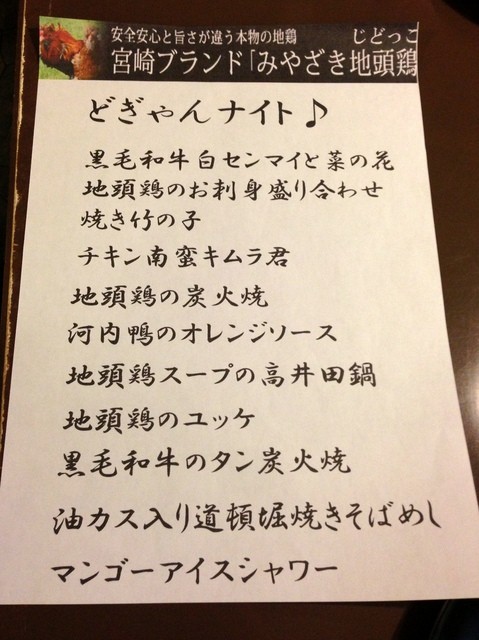 安全安心と旨さが違う本物の地鶏
じどっこ
宮崎ブランド「みやざき地頭鶏
どぎゃんナイト♪
黒毛和牛白センマイと菜の花
地頭鶏のお刺身盛り合わせ
焼き竹の子
チキン南蛮キムラ君
地頭鶏の炭火焼
河内鴨のオレンジソース
地頭鶏スープの高井田鍋
地頭鶏のユッケ
黒毛和牛のタン炭火焼
油カス入り道頓堀焼きそばめし
マンゴーアイスシャワー